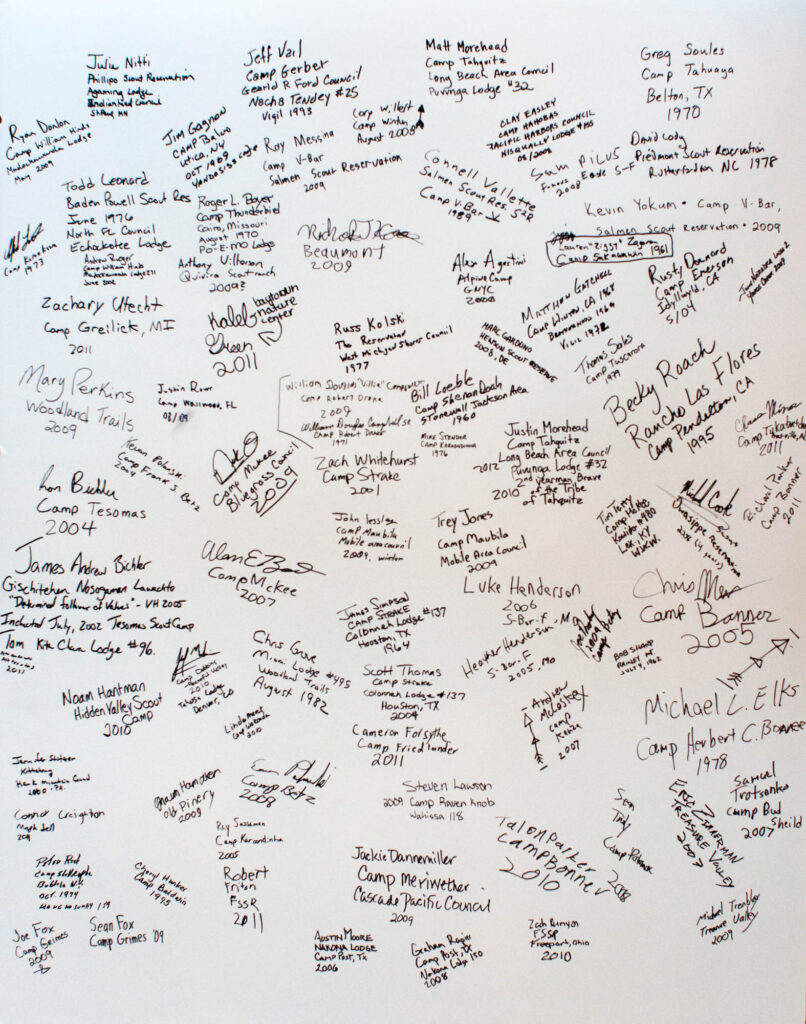 Julie Nitti
Phillipo Scout Reservation
Agaming Lodge
Indianhead Council
St Paul MN
Jeff Vail
Camp Gerber
Gerald R Ford Council
Nacha Tendey #25
Vigil 1993
Matt Morehead
Camp Tahquitz
Long Beach Area Council
Puvunga Lodge #32
Greg Soules
Camp Tahuaya
Belton, TX
1970
Ryan Donlon
Camp William Hinds
Madockawanda Lodge
May 2009
Jim Gagnon
Camp
Utica, NY
Oct 1969
Cory Willert
Camp Winton
August 2008
Clay Easley
Camp Hahobas
Pacific Harbors Council
Nisqually Lodge #155
08/2009
Roy Messina
Camp V-Bar
Salmen Scout Reservation
2009
Connell Vallette
Salmen Scout Res
Camp V-Bar
1989
Sam Pilus
Eagle
2008
David Cody
Piedmont Scout Reservation
Rutherfordton NC 1978
Todd Leonard
Baden Powell Scout Res
June 1976
North FL Council
Echockotee Lodge
Roger L. Boyer
Camp Thunderbird
Cairo, Missouri
August 1970
Po-E-Mo Lodge
Kevin Yokum • Camp V-Bar,
Salmen Scout Reservation • 2009
Lauren "Ziggy"
Camp Sakakawea 1961
1973
Andrew Rueger
Camp William Hinds
June 2002
Anthony
Quivira Scout ranch
2009?
Beaumont
2009
Alex Agostini
Alpine Camp
GNYC
2000
Matthew Gatchell
Camp Winton, CA 1957
1960
Vigil 1972
Rusty Donnard
Camp Emerson
Idyllwyld, CA
5/04
Zachary Utecht
Camp Greilick, MI
2011
Kaleb
Green
2011
baytown
nature
center
Russ Kolski
The Reservation
West Michigan Shores Council
1977
Marc Gardono
Henson Scout Reserve
2003, DE
Thomas Soles
Camp Tuscarora
1979
Becky Roach
Rancho Las Flores
Camp Pendleton, CA
1995
Mary Perkins
Woodland Trails
2009
Justin Rowe
Camp Wallwood, FL
08/09
William Douglas "Willie" Campbell
Camp Robert Drake
2009
William Douglas Campbell Sr
Camp Robert Drake
1971
Bill Loeble
Camp Shenandoah
Stonewall Jackson Area
1960
Mike Stender
Camp Karoondinha
1976
Justin Morehead
Camp Tahquitz
Long Beach Area Council
2012 Puvunga Lodge #32
2nd yearman Brave
2010 of the Tribe
of Tahquitz
2011
Camp Frank S. Betz
2004
Camp McKee
Bluegrass Council
2009
Zach Whitehurst
Camp Strake
2001
Ron Bichler
Camp Tesomas
2004
John
Camp Maubila
Mobile area council
2009, winter
Trey Jones
Camp Maubila
Mobile Area Council
2009
Tim Terry
Lex, KY
W.W.W.
Owasippe
E. Clari Parker
Camp Bonner
2011
James Andrew Bichler
Gischitehen Nosogamen Lawachto
"Determined follower of Values" - VH 2005
Inducted July, 2002 Tesomas Scout Camp
Tom Kita Chara Lodge #96.
2011
Alan E
Camp McKee
2007
James Simpson
Camp Strake
Colonneh Lodge #137
Houston, TX
1964
Luke Henderson
2006
S-Bar-F - MO
Heather Henderson
S-Bar-F
2005, MO
Chris
Camp Bonner
2005
Bob Sharp
July 4, 1962
2010
Tahosa Lodge
Denver, CO
Chris Grove
Miami Lodge #495
Woodland Trails
August 1982
Scott Thomas
Camp Strake
Colonneh Lodge #137
Houston, TX
2004
Andrew
McCloskey
Camp
2007
Noam Hantman
Hidden Valley Scout
Camp
2010
Linda
2010
Cameron Forsythe
Camp Friedlander
2011
Michael L. Elks
Camp Herbert C. Bonner
1978
Kittatinny
Hawk Mountain Council
Shawn Hamacher
Old Pinery
2009
Camp Betz
2009
Steven Lawson
2009 Camp Raven Knob
Wahissa 118
Samuel
Trotsenko
Camp Bud
2007 Sheild
Connor Creighton
2011
Ray Sassaman
Camp Karoondinha
2005
Talon Parker
Camp Bonner
2010
Sean
Camp
2008
Eric Zimmerman
Treasure Valley
2007
Peter
Buffalo N.Y.
Oct 1974
Cheryl Hunker
Camp Baldwin
1995
Robert
Friton
FSSR
2011
Jackie Dannemiller
Camp Meriwether
Cascade Pacific Council
2009
Michael Trembley
Treasure Valley
2009
Joe Fox
Camp Grimes
2009
Sean Fox
Camp Grimes '09
Austin Moore
Nakona Lodge
Camp Post, TX
2006
Graham Rogers
Camp Post, TX
Nakona Lodge 150
2008
Zach Runyon
FSSR
Freeport, Ohio
2010